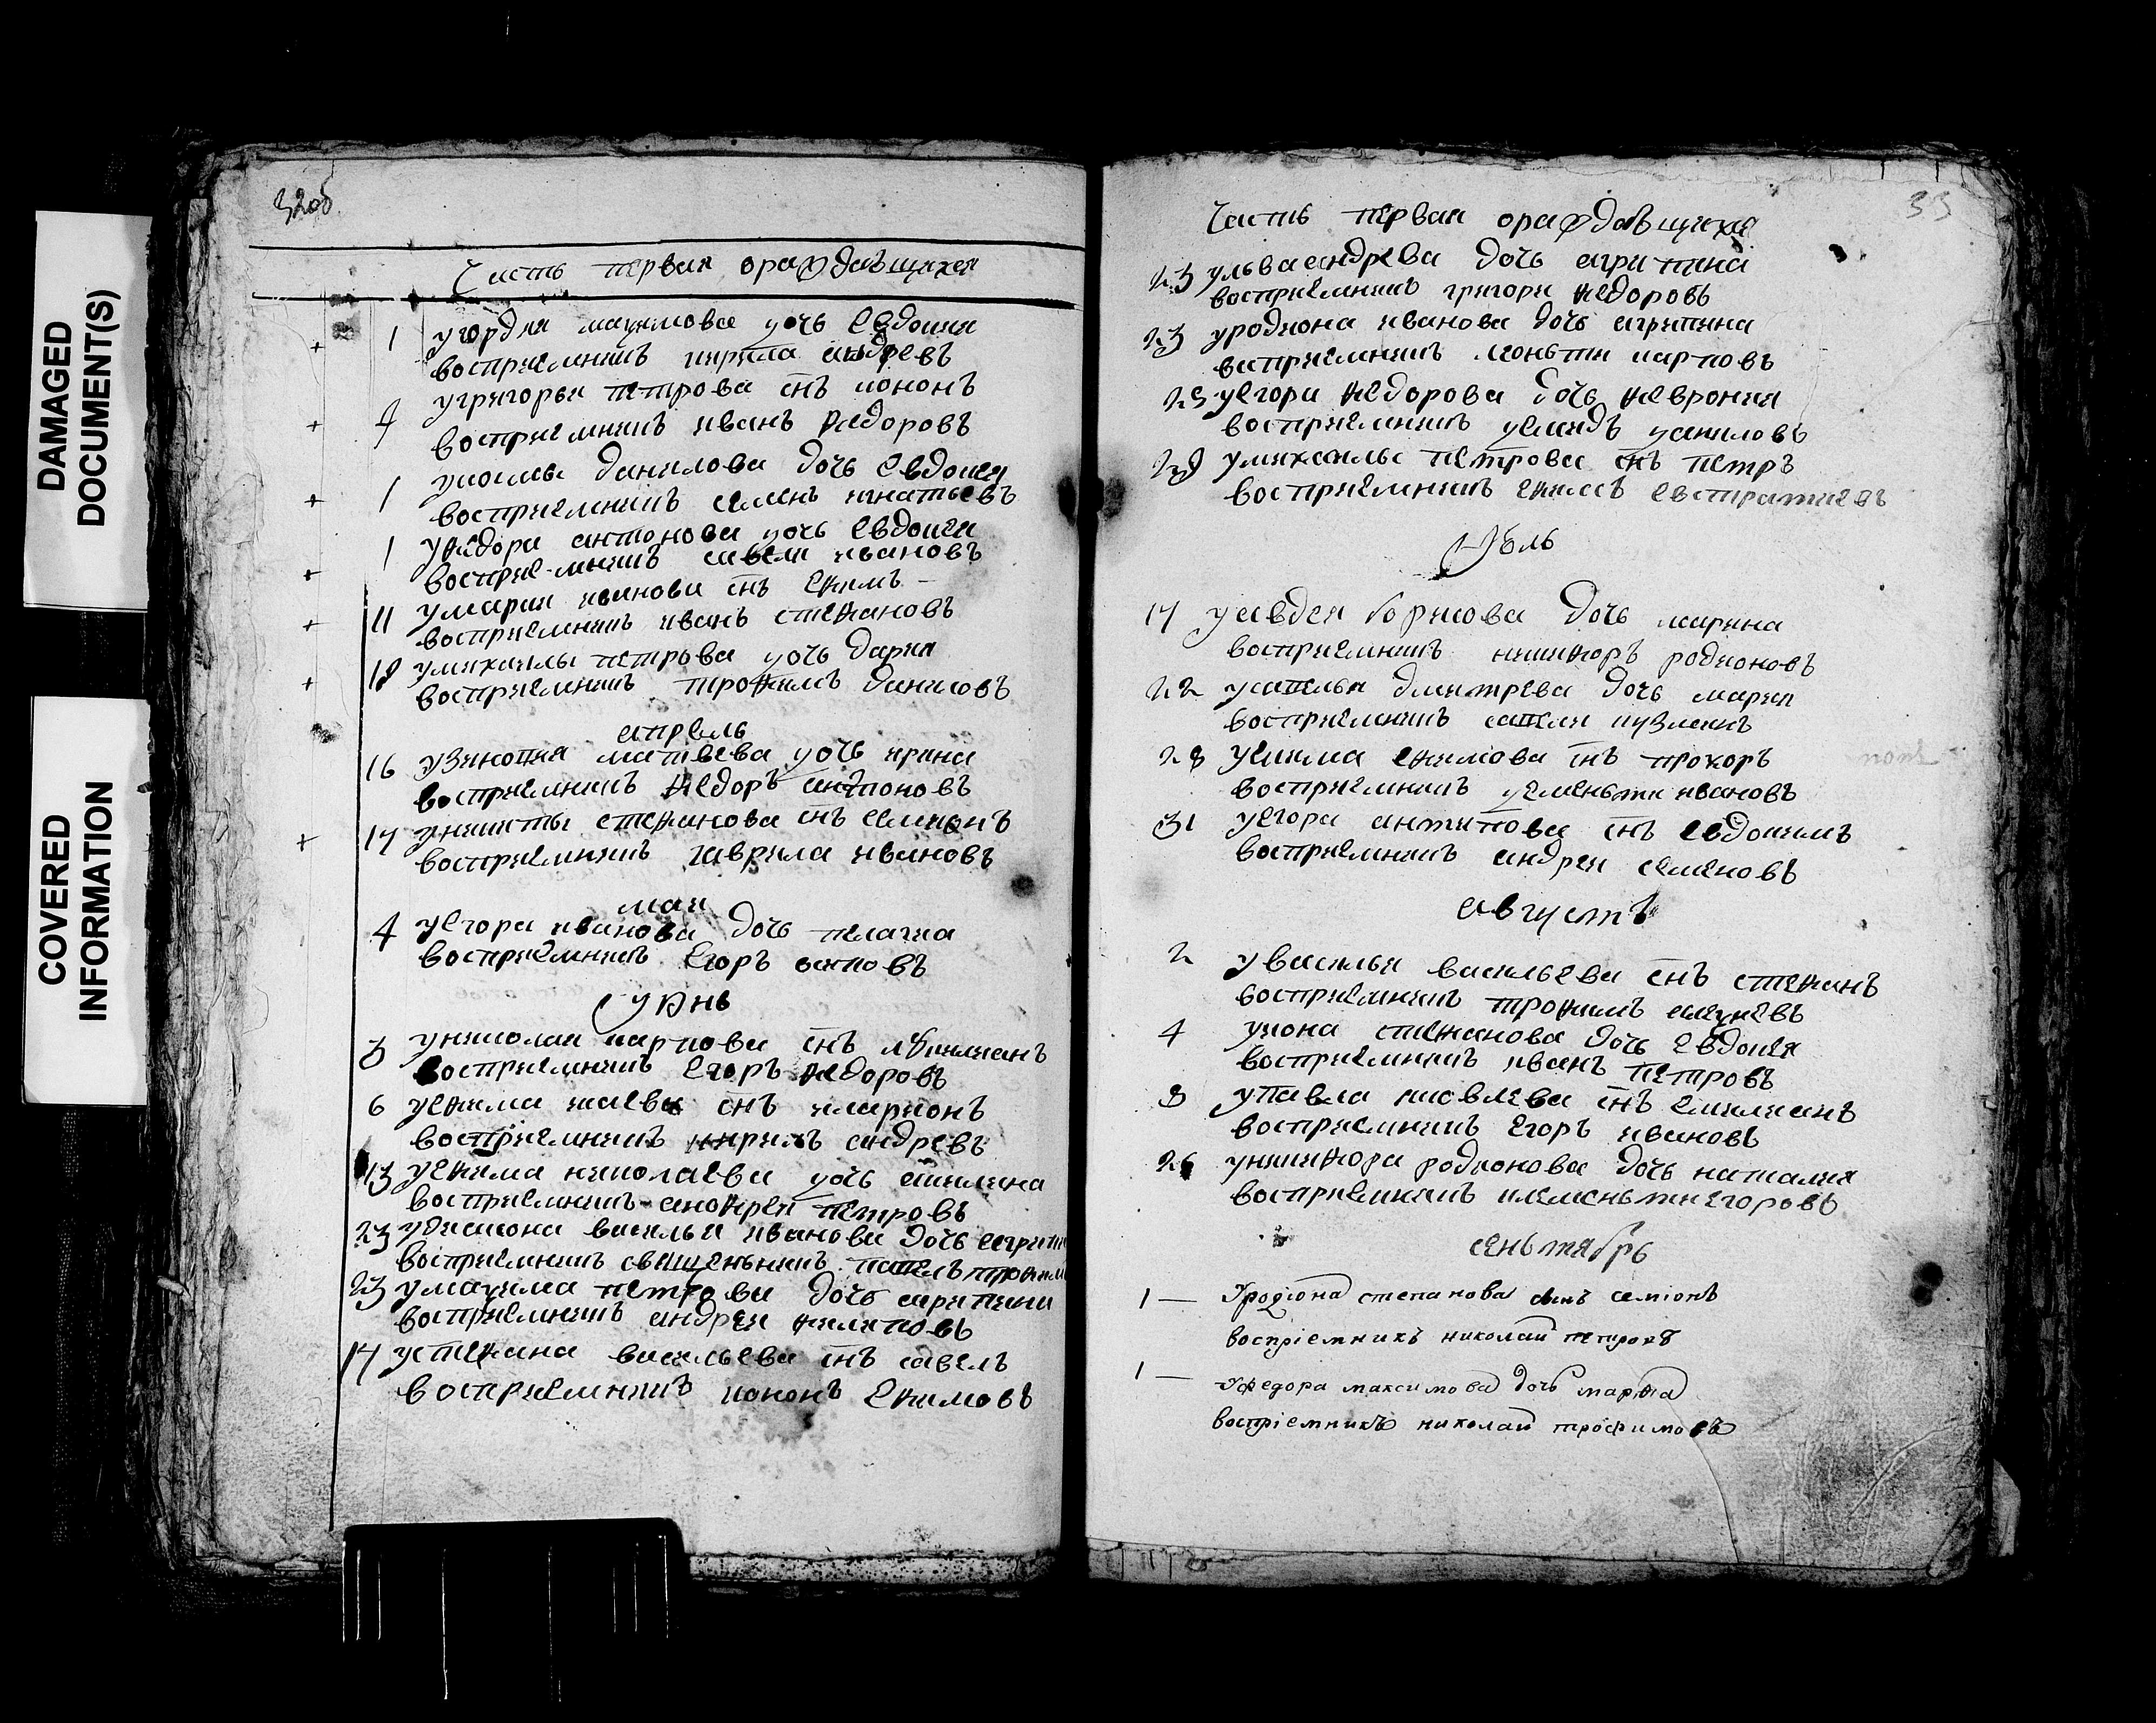 DAMAGED
DOCUMENT(S)
COVERED
INFORMATION
32об
Часть первая ораждаѣщихся
1 угордѣя маѯимова дочь евдокия
восприемникъ кирила андревъ
4 угригорья петрова снъ конон
восприемникъ иванъ ѳедоровъ
1 укосмы данилова дочь евдокея
восприемникъ семенъ игнатьевъ
1 уѳедора антонова дочь евдокея
восприемникъ савели ивановъ
11 умарки иванова снъ еѳимъ
восприемникъ иванъ стеѳановъ
18 умихаилы петрова дочь дария
восприемникъ троѳимъ даниловъ
апрель
16 узиновия матвева дочь ирина
восприемникъ ѳедоръ антоновъ
17 уникиты стеѳанова снъ семионъ
восприемникъ гаврила ивановъ
маи
4 уегора иванова дочь пелагиа
восприемникъ егоръ осиповъ
иунь
3 униколаи карпова снъ
восприемникъ егоръ ѳедоровъ
6 уеѳима иаева снъ иларионъ
восприемникъ кирилъ андревъ
13 уеѳима николаева дочь акилина
восприемникъ аноѳреи петровъ
23 удиакона василья иванова дочь агрипи
восприемникъ священникъ павелъ троѳим
23 умаѯима петрова дочь агрипина
восприемникъ андреи ѳилиповъ
14 устеѳана васильева снъ савелъ
восприемникъ кононъ еѳимовъ
33
Часть первая ораждаѣщихся
23 ульва андрева дочь агрипина
восприемникъ григори ѳедоровъ
23 уродиона иванова дочь агрипина
восприемникъ леонъти карповъ
25 уегора ѳедорова дочь ѳеврония
восприемникъ даниловъ
29 умихаилы петрова снъ петръ
восприемникъ еѳимъ евстратиевъ
иѣль
17 уавдея борисова дочь марина
восприемникъ никиѳоръ родионовъ
22 усавелья дмитрева дочь мария
восприемникъ савели кузминъ
28 уекима еѳимова снъ прохоръ
восприемникъ ивановъ
31 уегора антипова снъ евдокимъ
восприемникъ андреи семеновъ
августъ
2 увасилья васильева снъ стеѳанъ
восприемникъ троѳимъ алеѯиевъ
4 уиона стеѳанова дочь евдокея
восприемникъ иванъ петровъ
8 упавла иковлева снъ емилианъ
восприемникъ егоръ ивановъ
26 уникиѳора родионова дочь наталия
восприемникъ клеменьти егоровъ
сеньтябрь
1 — Уродіона степанова сынъ семіонъ
воспріемникъ николаи петровъ
1 — Уѳедора максимова дочь марѳа
воспріемникъ николаи трофимовъ